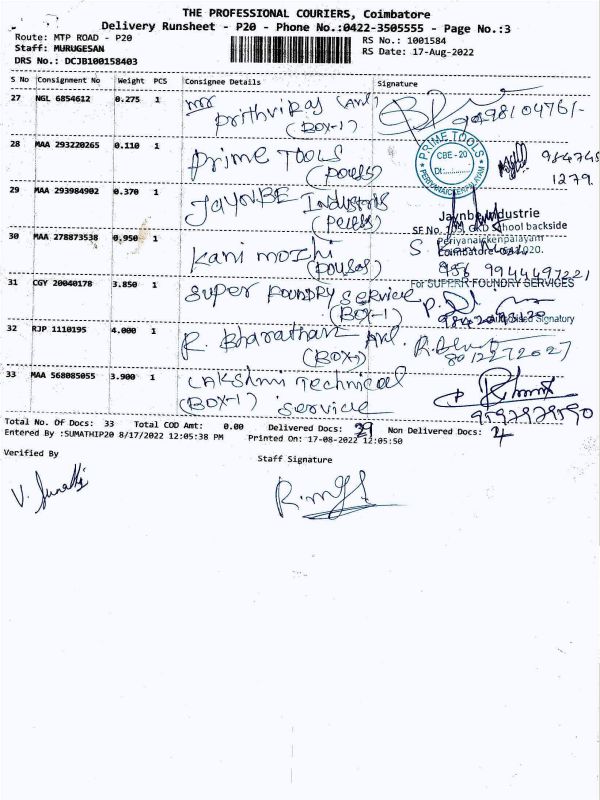 THE PROFESSIONAL COURIERS, Coimbatore
Delivery Runsheet - P20 - Phone No.:0422-3505555 - Page No.:3
Route: MTP ROAD - P20
RS No.: 1001584
Staff: MURUGESAN
RS Date: 17-Aug-2022
DRS No.: DCJB100158403
S No Consignment No Weight PCS Consignee Details Signature
27 NGL 6854612 0.275 1 Mr
Prithviraj (Avl)
(BOX-1)
28 MAA 293220265 0.110 1 Prime TOOLS
PRIME TOOLS
CBE - 20
Dt:
PERIYANAICKENPALAYAM
1279
29 MAA 293984902 0.370 1 JAYNBE Industris
Jaynbe Industrie
GKD School backside
Periyanaickenpalayam
30 MAA 278873538 0.950 1 Kani mozhi
Coimbatore
9944497221
31 CGY 20040178 3.850 1 Super FOUNDRY Service
(BOX-1)
For SUPERR FOUNDRY SERVICES
Authorised Signatory
32 RJP 1110195 4.000 1 R. Bharathan Avl.
8012272027
33 MAA 568085055 3.900 1 LAKshmi Technical
(BOX-1) Service
9597979590
Total No. Of Docs: 33 Total COD Amt: 0.00 Delivered Docs: 29 Non Delivered Docs: 4
Entered By :SUMATHIP20 8/17/2022 12:05:38 PM Printed On: 17-08-2022 12:05:50
Verified By
Staff Signature